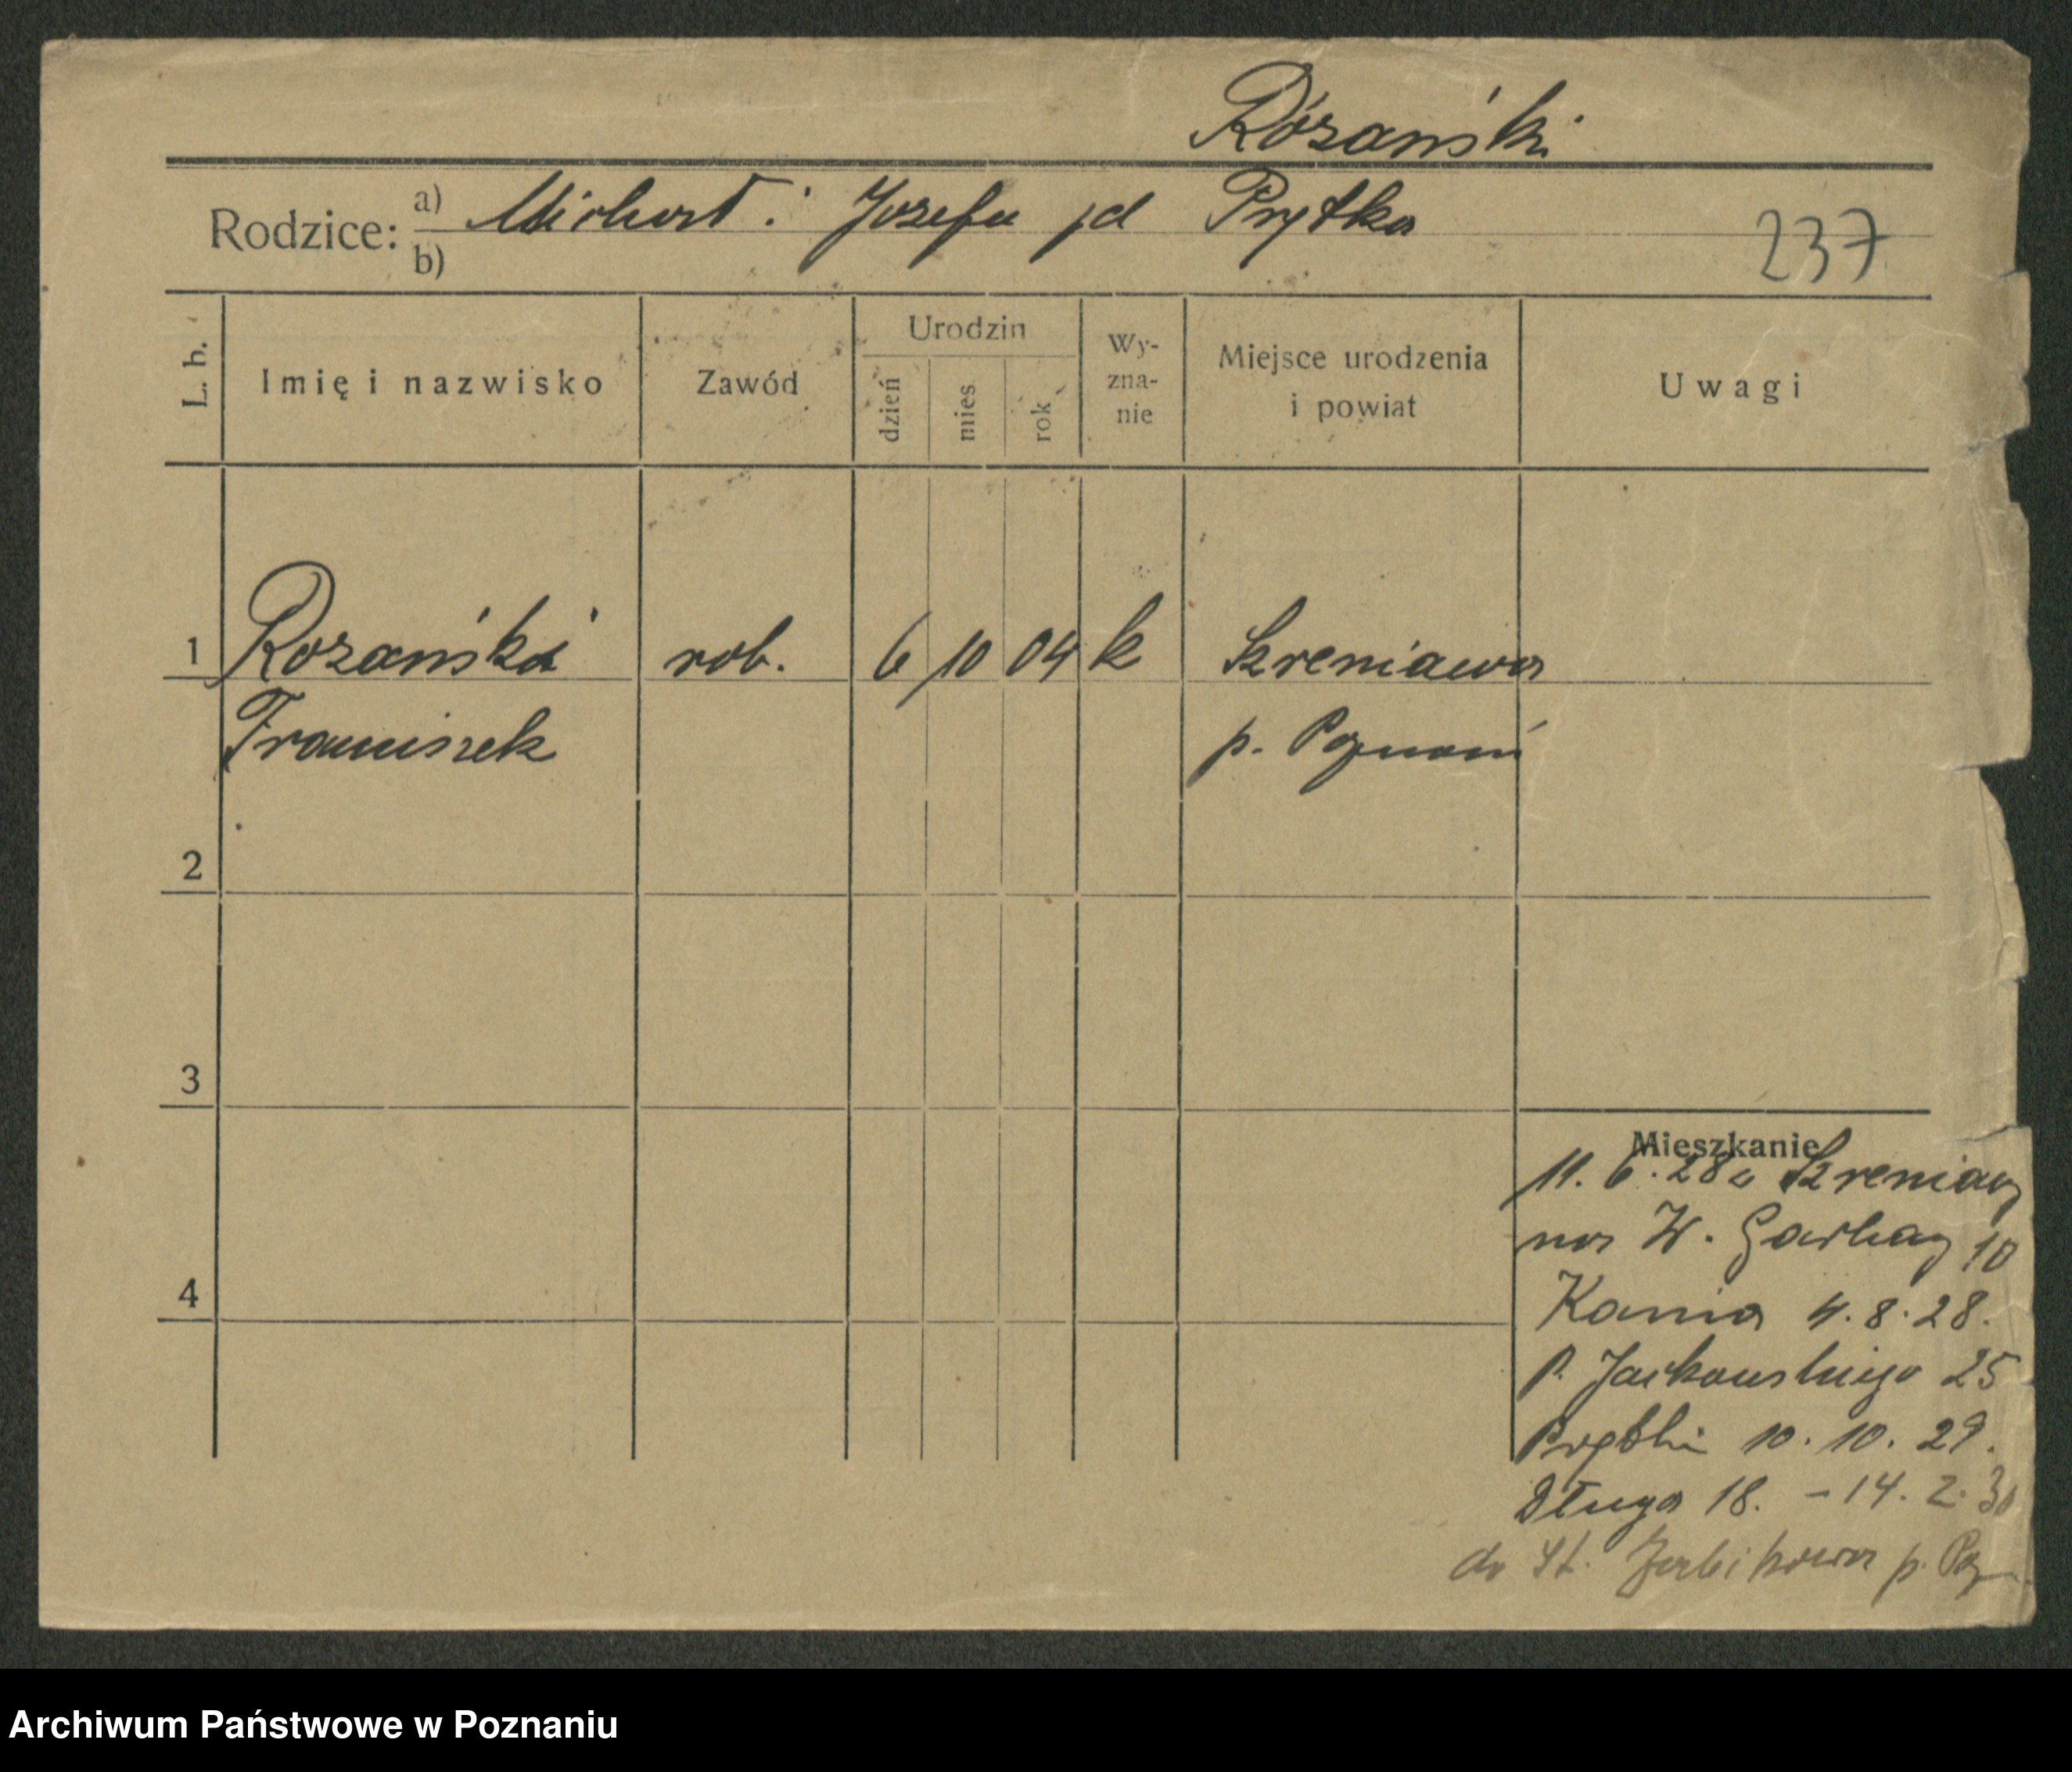 Rózański
Rodzice: a) Michał i Józefa zd Prętka
b)
237
L. b.
Imię i nazwisko
Zawód
Urodzin
dzień
mies
rok
Wy-
zna-
nie
Miejsce urodzenia
i powiat
Uwagi
1 Rozański rob. 6 10 04 k Szreniawa
Franciszek p. Poznań
2
3
4
Mieszkanie
11. 6. 28 z Szreniawy
na W. Garbary 10
Kania 4. 8. 28.
P. Jackowskiego 25
10. 10. 29.
Długa 18. - 14. 2. 30
do St. Żabikowa p. Poz
Archiwum Państwowe w Poznaniu